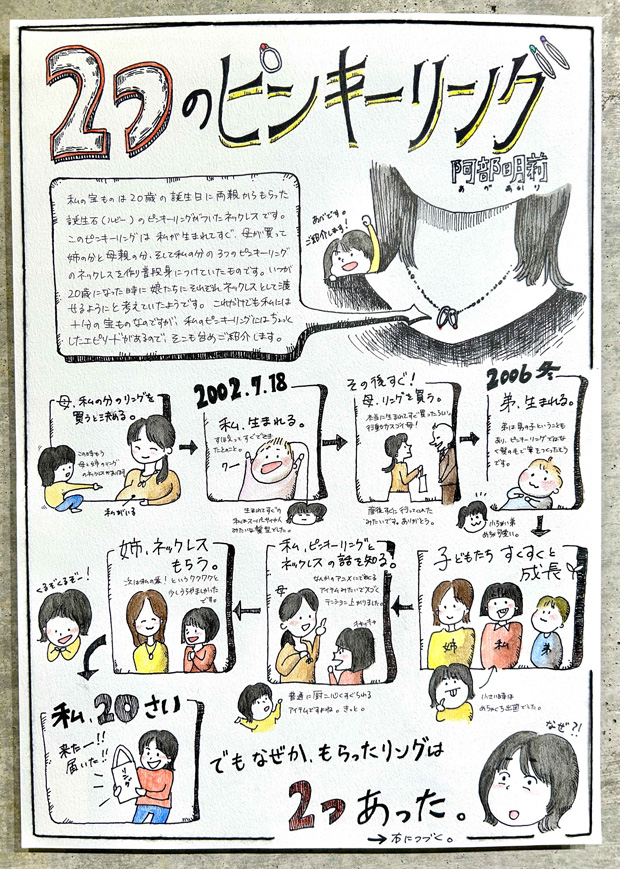 2つのピンキーリング
阿部明莉
あべあかり
私の宝ものは20歳の誕生日に両親からもらった
誕生石(ルビー)のピンキーリングがついたネックレスです。
このピンキーリングは私が生まれてすぐ、母が買って
姉の分と母親の分、そして私の分の3つのピンキーリング
のネックレスを作り普段身につけていたものです。いつか
20歳になった時に娘たちにそれぞれネックレスとして渡
せるようにと考えていたようです。これだけでも私には
十分の宝ものなのですが、私のピンキーリングにはちょっと
したエピソードがあるので、そこも含めご紹介します。
あべです。
ご紹介します!
母、私の分のリングを
買うと決める。
この時もう
母と姉のリング
私がいる
2002.7.18
私、生まれる。
ワー
生まれてすぐの
みたいな髪型でした。
その後すぐ!
母、リングを買う。
本当に生まれてすぐ買ったらしい。
行動力カスゴイ母!
産後すぐに行ってくれた
みたいです。ありがとう。
2006 冬
弟、生まれる。
弟は男の子ということも
あり、ピンキーリングではな
く髪の毛で筆をつくったそう
です。
小さい弟
子どもたち すくすくと
成長
姉
私
弟
小さい時は
めちゃくちゃ出歯でした。
私、ピンキーリングと
ネックレスの話を知る!
なんかのアニメにでてくる
アイテムみたいで×2
テンション上がりました。
母
普通に厨二心くすぐられる
アイテムですよね。きっと。
姉、ネックレス
もらう。
次は私の番!というワクワクと
少しうらやましかった
です。
くるぞくるぞー!
私、20さい
来たー!!
届いた!!
リング
でもなぜか、もらったリングは
2つあった。
なぜ?!
→右につづく。